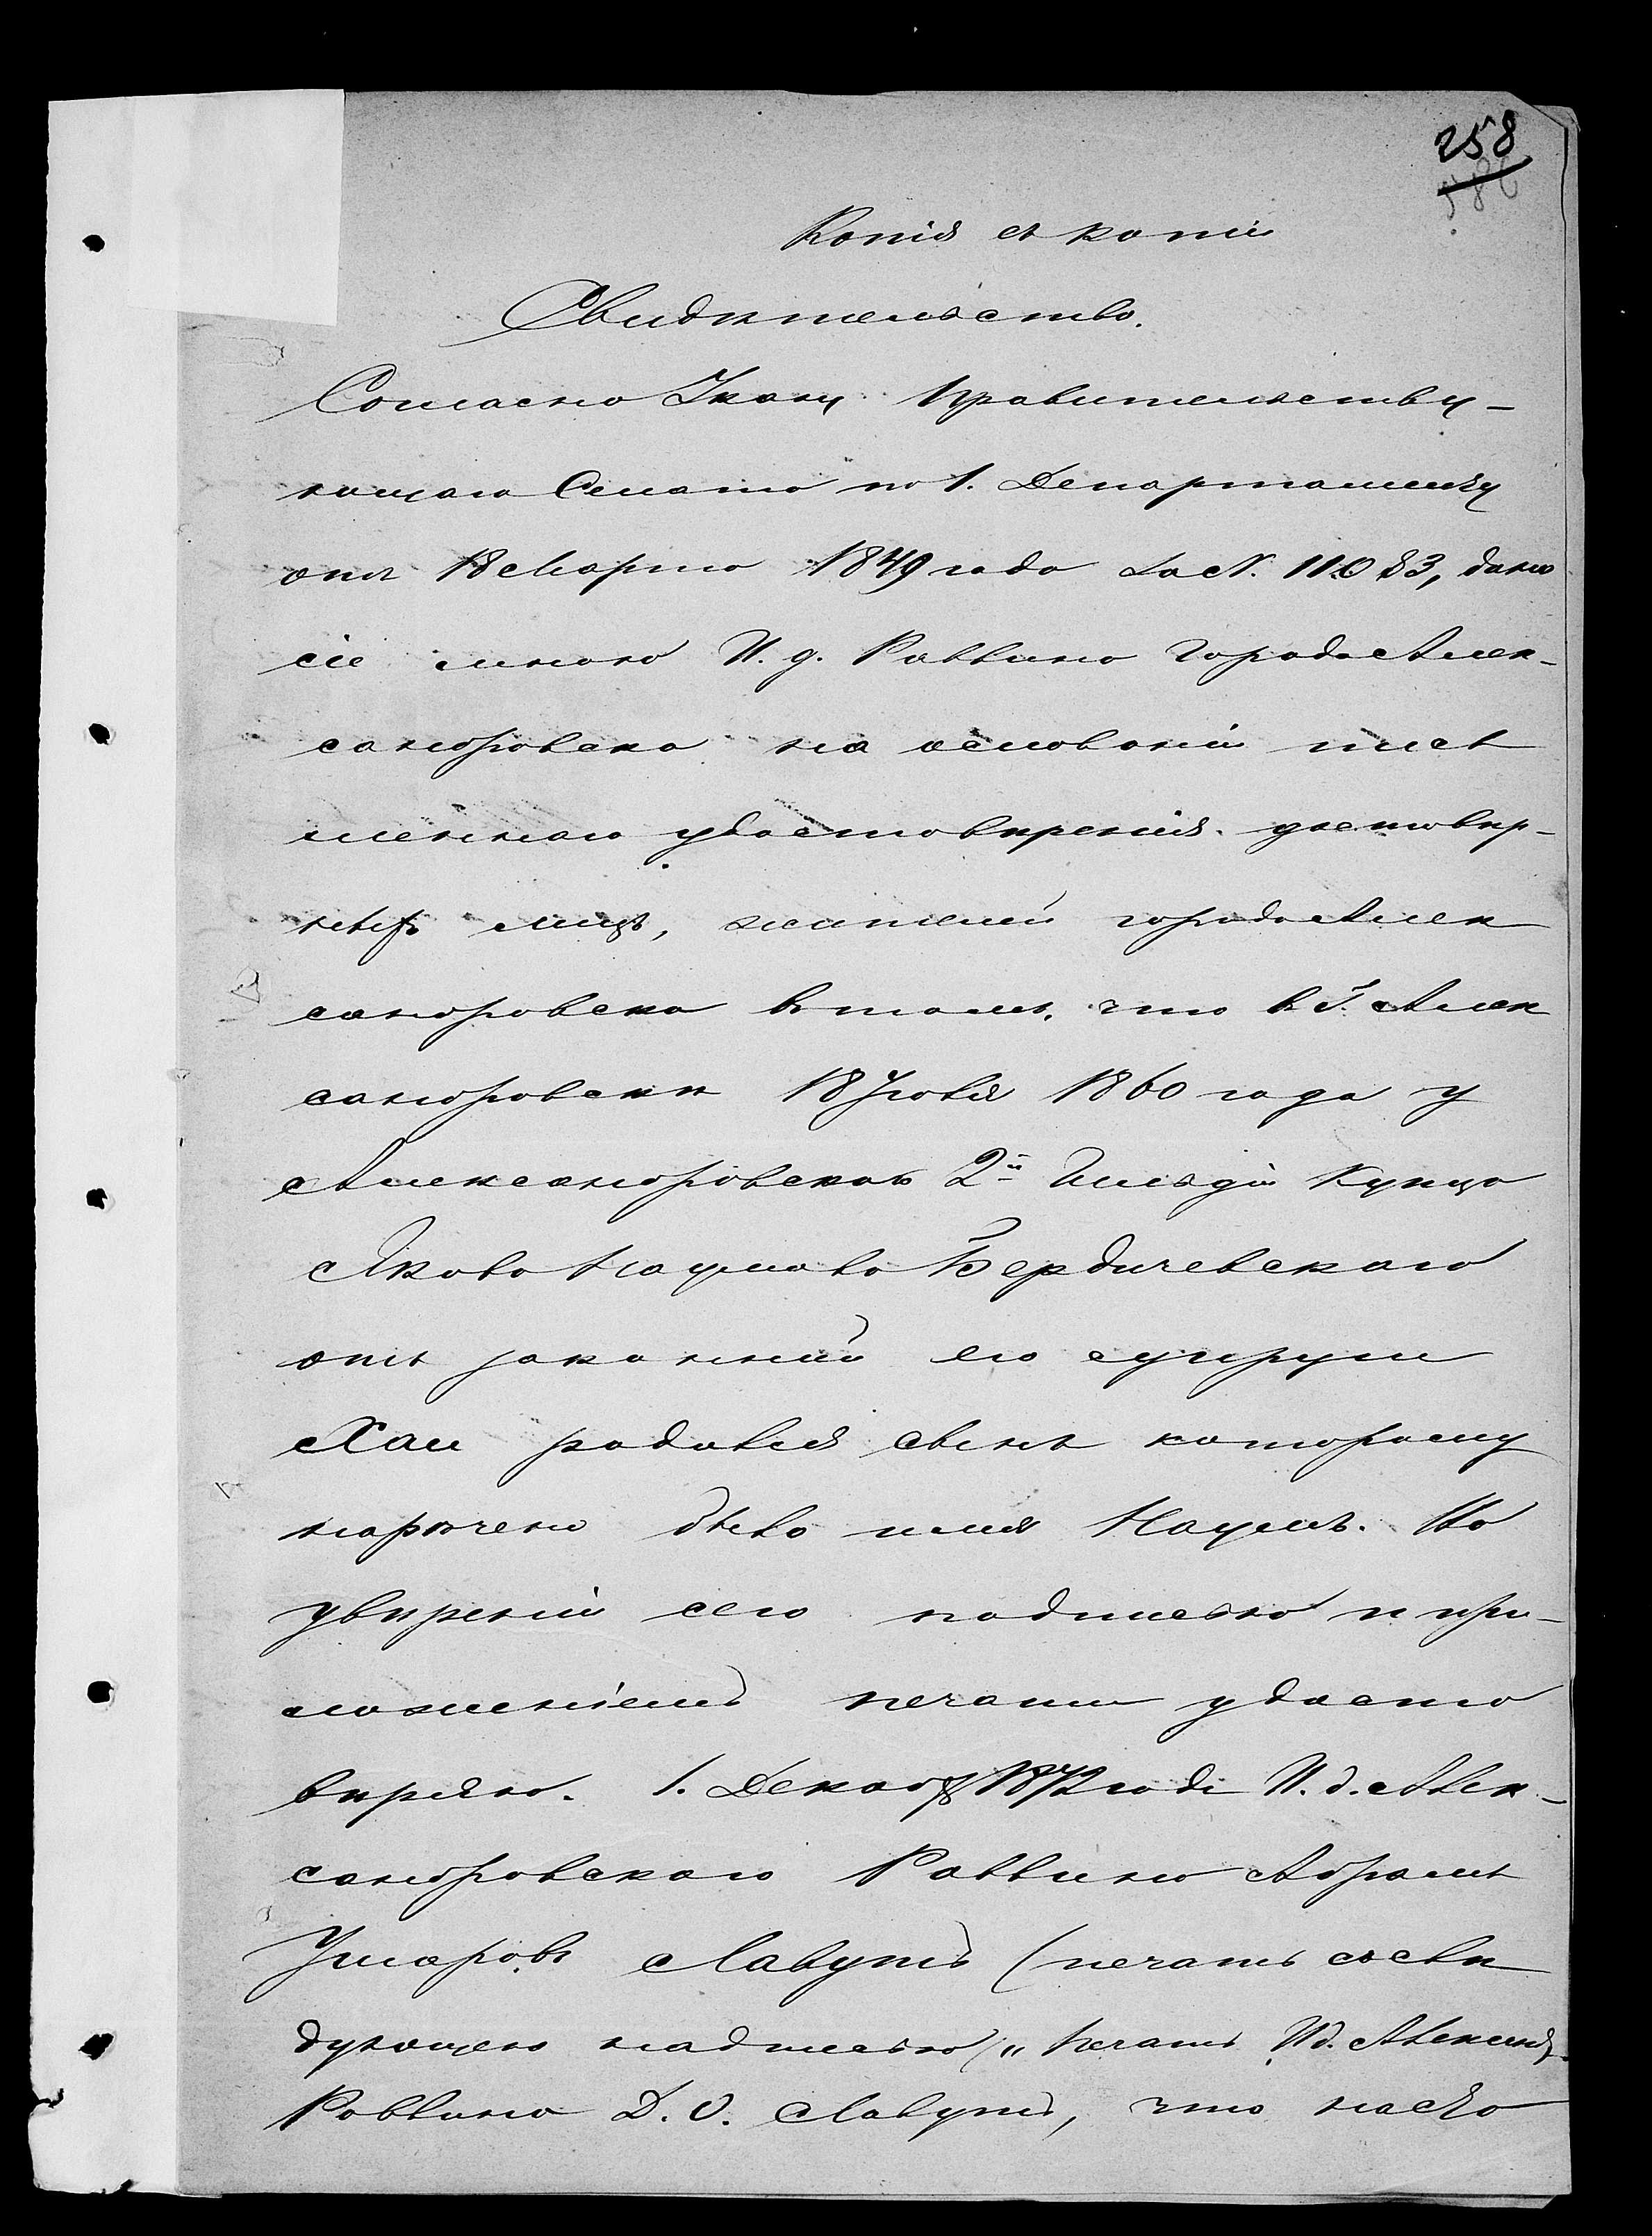 258
Копія съ копіи
Свидѣтельство.
Согласно Указу Правительству-
ющаго Сената по 1. Департаменту
отъ 18 Марта 1849 года за N. 11083, дано
сіе мною И. д. Раввина Города Алек-
сандровска на основаніи пись
меннаго удостовѣренія достовѣр-
ныхъ лицъ, жителей города Алек
сандровска въ томъ, что въ Г. Алек
сандровскѣ 18 Іюля 1860 года у
Александровскаго 2й Гильдіи Купца
Якова Наумова Бердичевскаго
отъ законной его супруги
Хаи родился сынъ которому
наречено было имя Наумъ. Въ
увѣреніи сего подписью и при-
ложеніемъ печати удосто
вѣряю. 1. Декабря года И. д. Алек-
сандровскаго Раввина Абрамъ
Лавутъ (печать съ слѣ
дующею надписью) „Печать Ид. Александ.
Раввина Д. О. Лавутъ, что